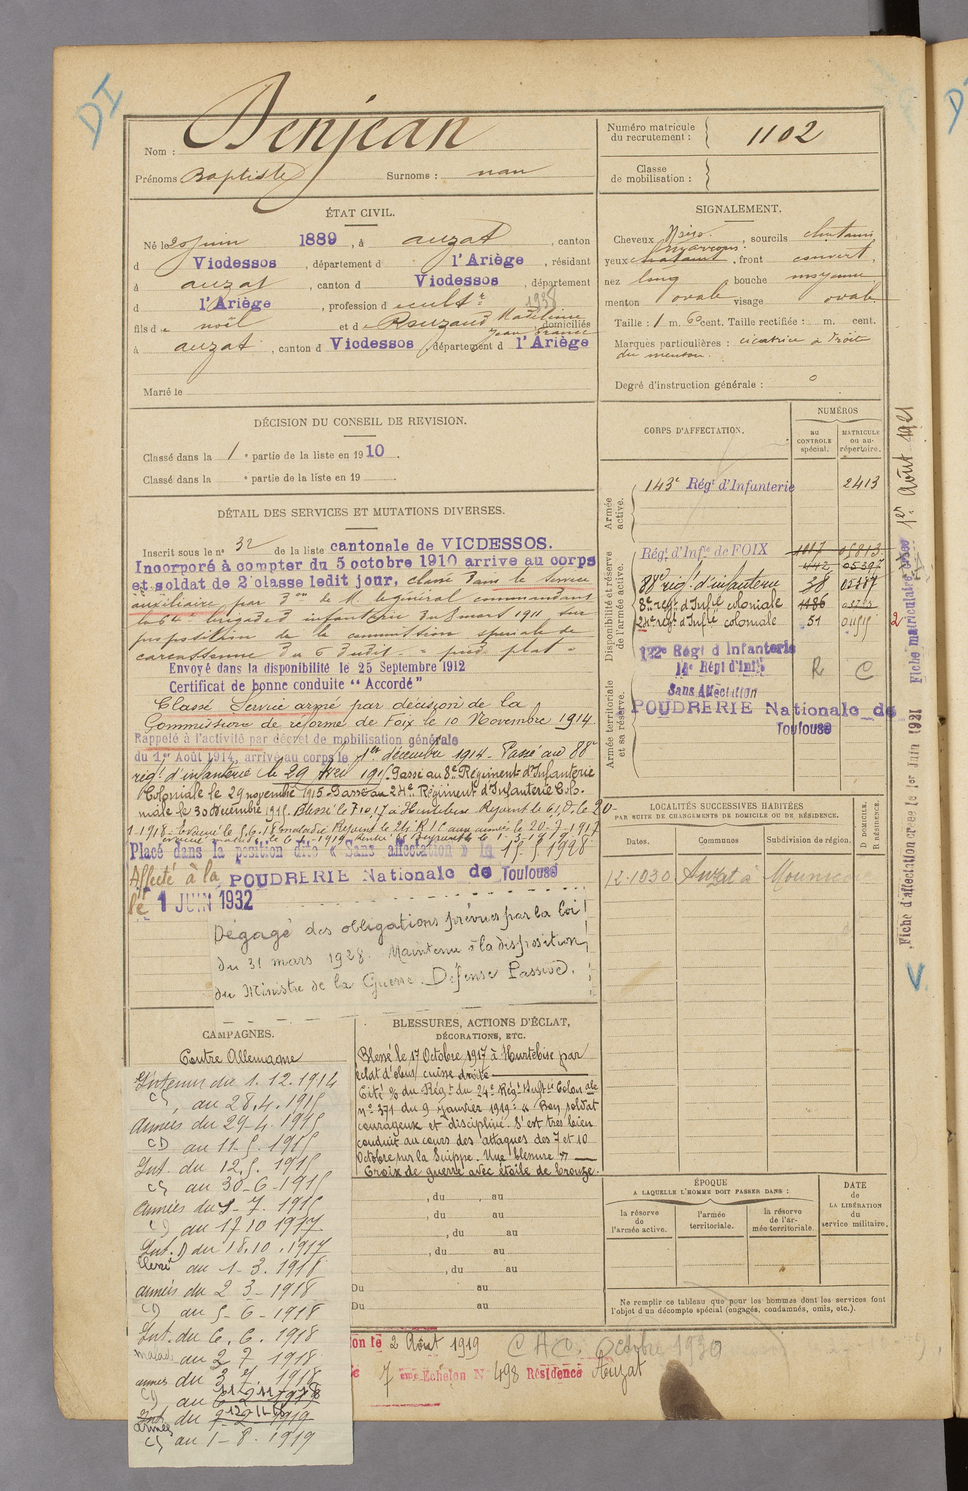 DI
Nom : Denjean
Prénoms Baptiste Surnoms : nan
Numéro matricule du recrutement : 1102
Classe de mobilisation :
ÉTAT CIVIL.
Né le 20 juin 1889, à auzat, canton
d Vicdessos, département d l'Ariège, résidant
à auzat, canton d Vicdessos, département
d l'Ariège, profession d cultr
1938
fils de noël et de Rouzaud Madeleine
Jean France
domiciliés
à auzat, canton d Vicdessos, département d l'Ariège
Marié le
SIGNALEMENT.
Cheveux Noirs. sourcils chatains
yeux chatains, front couvert,
nez long bouche moyenne
menton ovale visage ovale
Taille : 1 m. 60 cent. Taille rectifiée : m. cent.
Marques particulières : cicatrice à droite
du menton.
Degré d'instruction générale : 0
DÉCISION DU CONSEIL DE REVISION.
Classé dans la 1e partie de la liste en 1910.
Classé dans la e partie de la liste en 19 .
DÉTAIL DES SERVICES ET MUTATIONS DIVERSES.
Inscrit sous le n° 32 de la liste cantonale de VICDESSOS.
Incorporé à compter du 5 octobre 1910 arrive au corps
et soldat de 2e classe ledit jour, classé dans le service
auxiliaire par Don de M. le général commandant
la 64e brigade d'infanterie du 8 mars 1911 sur
proposition de la commission spéciale de
carcassonne du 6 dudit. " pied plat "
Envoyé dans la disponibilité le 25 Septembre 1912
Certificat de bonne conduite "Accordé"
Classé Service armé par décision de la
Commission de réforme de Foix le 10 Novembre 1914.
Rappelé à l'activité par décret de mobilisation générale
du 1er Août 1914, arrivé au corps le 1er décembre 1914. Passé au 88e
rég. d'infanterie le 29 1915. Passé au 8e Régiment d'Infanterie
Coloniale le 29 novembre 1915. Passé au 24e Régiment d'Infanterie Colo-
niale le 30 Décembre 1915. Blessé le 7.10.17 à Hurtebise Rejoint le
1-1918. Evacué le 5.6.18 maladie Rejoint le 24e R.I.C aux armées le 20-7-1917
Placé dans la position dite « Sans affectation » le 15.5.1928
Affecté à la POUDRERIE Nationale de Toulouse
le 1 JUIN 1932
Dégagé des obligations prévues par la loi
du 31 mars 1928. Maintenu à la disposition
du Ministre de la Guerre. Défense Passive.
CORPS D'AFFECTATION.
NUMÉROS
au CONTROLE spécial.
MATRICULE ou au répertoire.
Armée active.
143e Régt d'Infanterie 2413
Disponibilité et réserve de l'armée active.
Régt d'Infie de FOIX 1017 05813
1142 05397
88e régt d'infanterie 38 05387
8e régt d'Infie coloniale 1186
24e régt d'Infie coloniale 51
Armée territoriale et sa réserve.
122e Régt d'Infanterie
14e Régt d'Infie R C
Sans Affectation
POUDRERIE Nationale de
Toulouse
LOCALITÉS SUCCESSIVES HABITÉES
PAR SUITE DE CHANGEMENTS DE DOMICILE OU DE RÉSIDENCE.
Dates. Communes Subdivision de région. D DOMICILE. R RÉSIDENCE.
12-1030 Auzat à
Fiche d'affectation créée le 1er Juin 1931 Fiche matriculaire 1er Août 1921
2
V
CAMPAGNES.
Contre Allemagne
Intérieur du 1.12.1914
CS, au 28.4.1915
Armées du 29-4.1915
CD au 11-5.1915
Int. du 12.5.1915
CS au 30-6-1915
Armées du 1-7.1915
CD au 17 10 1917
Int. D du 18.10.1917
au 1-3.1918
armées du 2 3-1918
CD au 5-6-1918
Int. du 6.6.1918
malad au 2 7 1918
armées du 3 7.1918
CD au 11 1918
Int. du 1919
armées 12-11-18
CS au 1-8.1919
BLESSURES, ACTIONS D'ÉCLAT,
DÉCORATIONS, ETC.
Blessé le 17 Octobre 1917 à Hurtebise par
éclat d'obus cuisse droite
Cité % du Régt du 24e Régt Inftie Coloniale
N° 371 du 9 janvier 1919 : « Bon soldat
courageux et discipliné. S'est très bien
conduit au cours des attaques des 7 et 10
Octobre sur la Suippe. Une blessure »
Croix de guerre avec étoile de bronze.
, du , au
, du au
, du au
, du au
, du au
Du au
Du au
ÉPOQUE
A LAQUELLE L'HOMME DOIT PASSER DANS :
la réserve de l'armée active.
l'armée territoriale.
la réserve de l'armée territoriale.
DATE
de
LA LIBÉRATION
du
service militaire.
Ne remplir ce tableau que pour les hommes dont les services font
l'objet d'un décompte spécial (engagés, condamnés, omis, etc.).
ion le 2 Août 1919 Octobre 1930
7 eme Echelon N° 498 Résidence Auzat